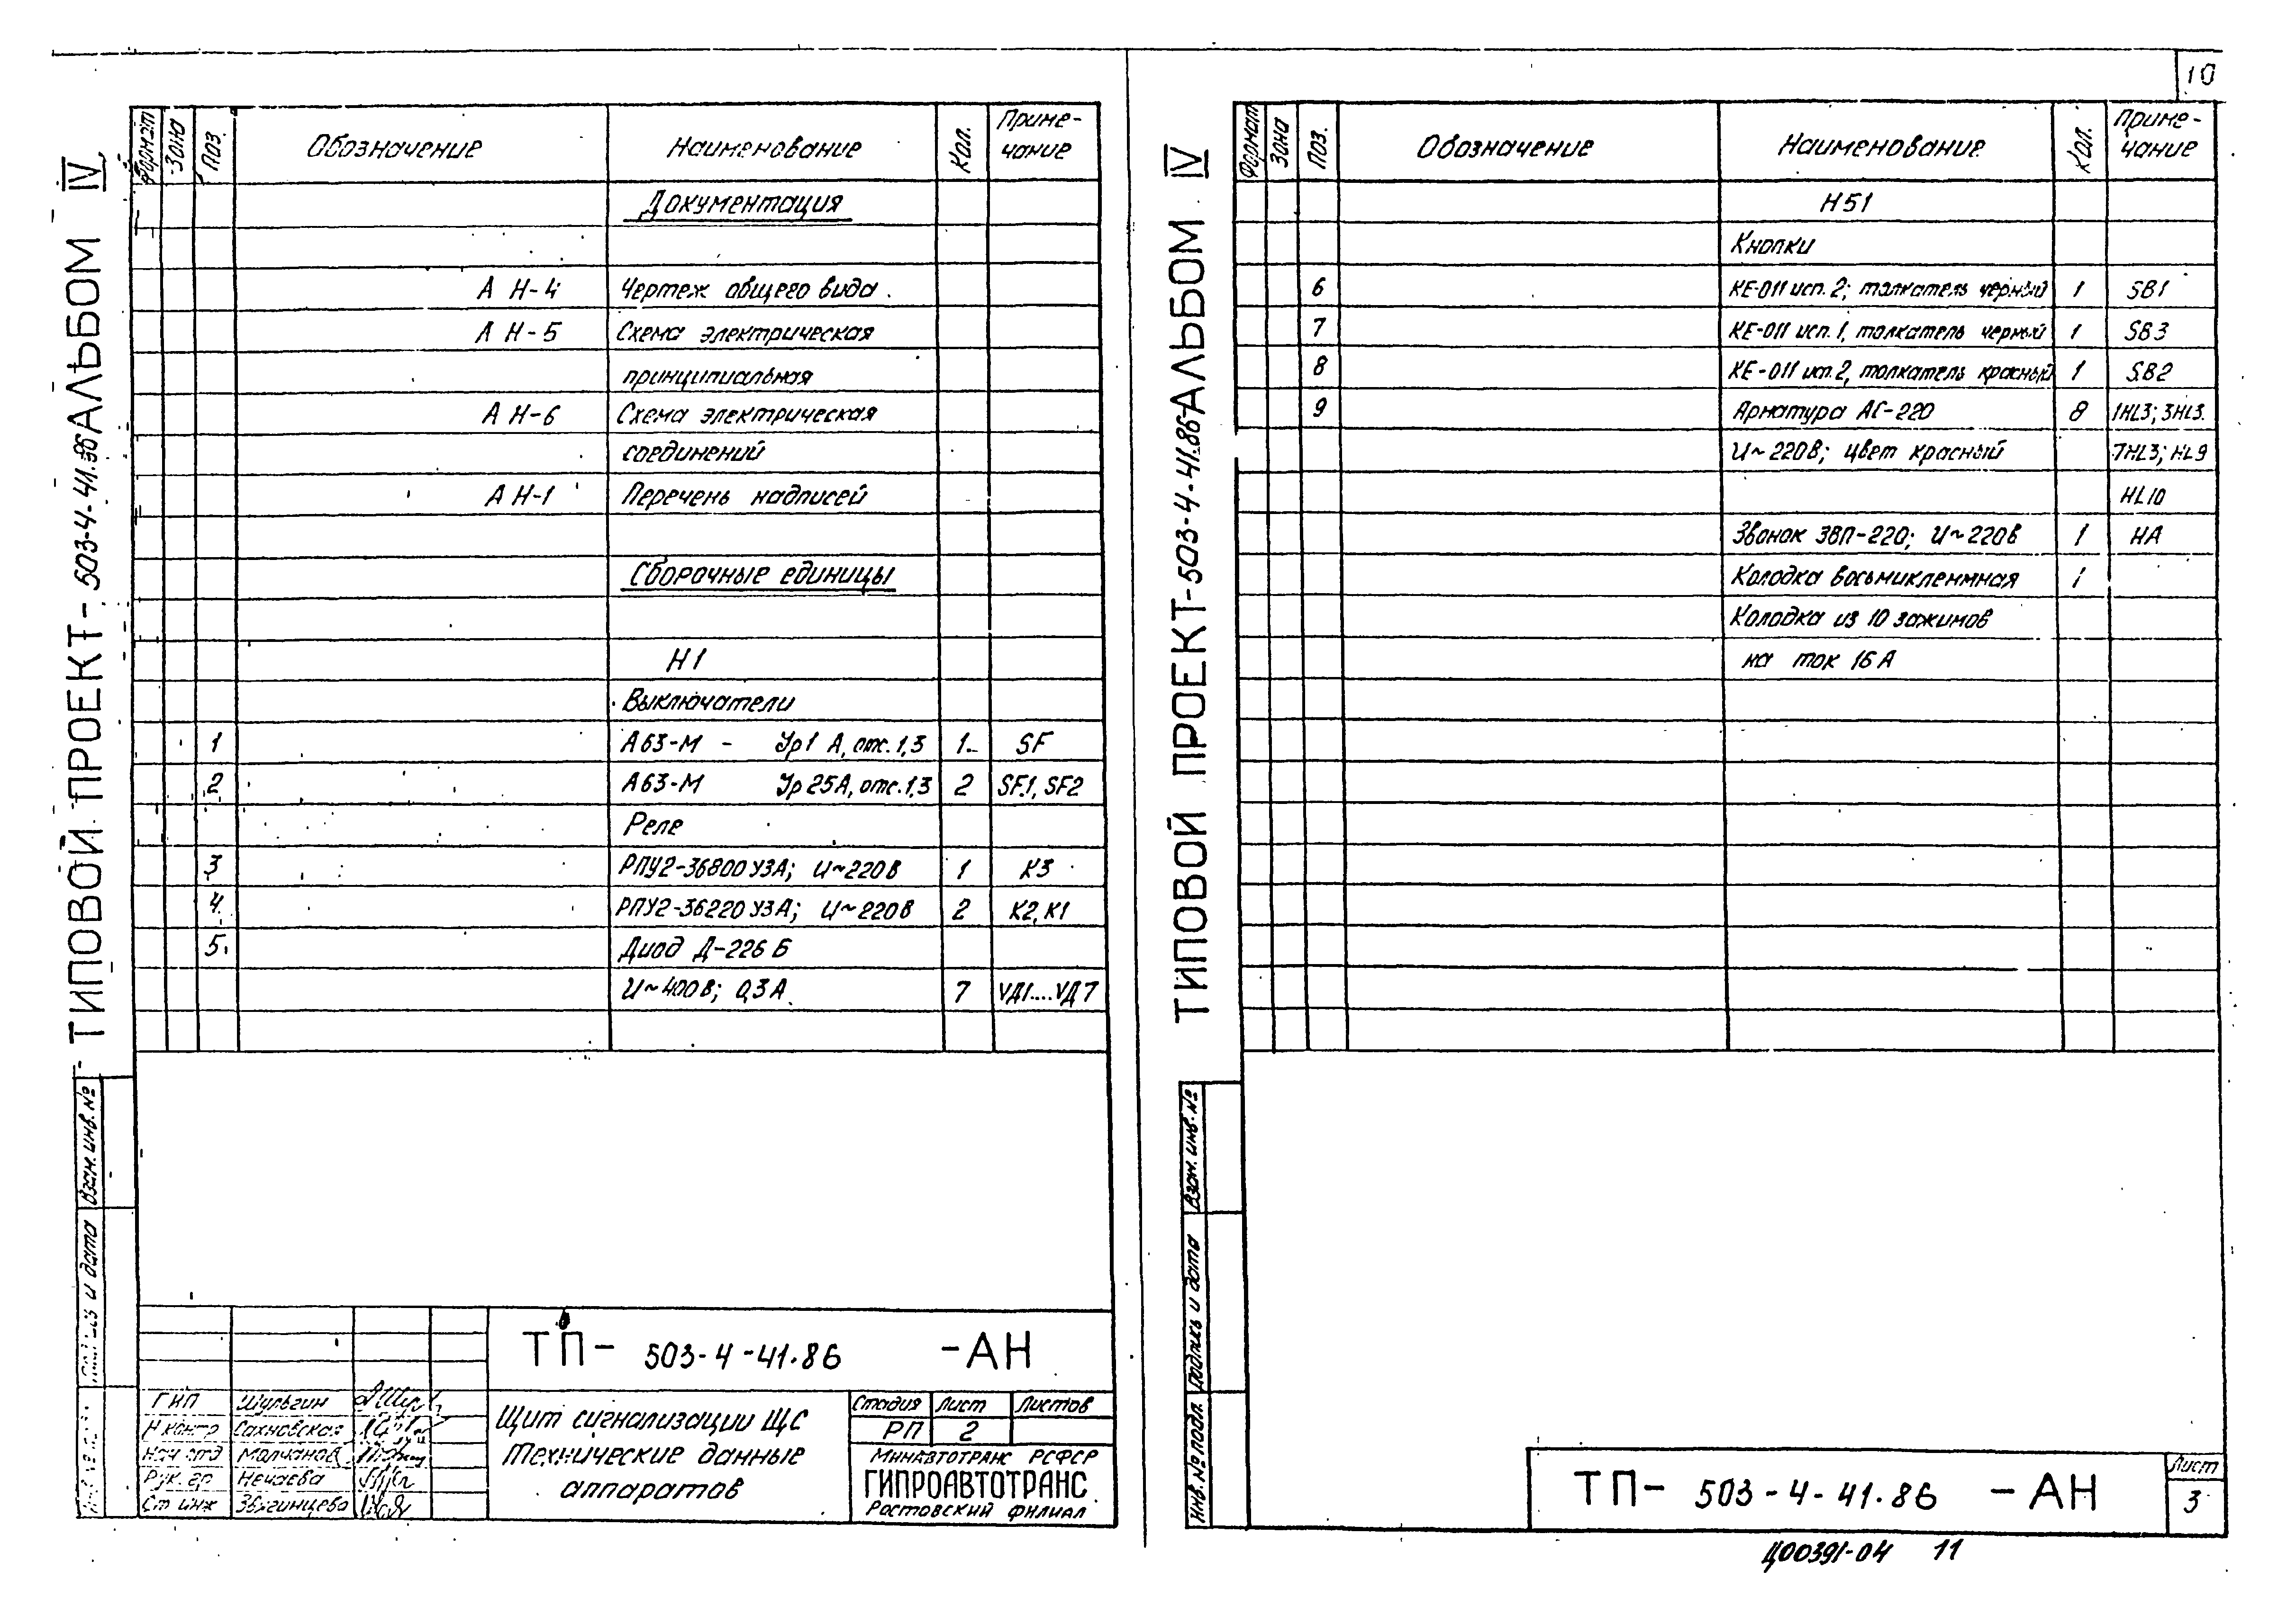 10
ТИПОВОЙ ПРОЕКТ-503-4-41.86 АЛЬБОМ IV
Формат Зона Поз. Обозначение Наименование Кол. Приме-
чание
Документация
АН-4 Чертеж общего вида
АН-5 Схема электрическая
принципиальная
АН-6 Схема электрическая
соединений
АН-1 Перечень надписей
Сборочные единицы
Н1
Выключатели
1 А63-М - Ур1 А, отс.1,3 1 SF
2 А63-М Ур25А, отс.1,3 2 SF1, SF2
Реле
3 РПУ2-36800У3А; U~220В 1 К3
4 РПУ2-36220У3А; U~220В 2 К2, К1
5 Диод Д-226Б
U~400В; 0,3А 7 VД1....VД7
Взам. инв. №
и дата
ТП- 503-4-41.86 -АН
ГИП Шульгин
Н контр Сахновская
Нач отд Молчанов
Рук. гр Нечаева
Ст инж Звягинцева
Щит сигнализации ЩС
Технические данные
аппаратов
Стадия Лист Листов
РП 2
Минавтотранс РСФСР
ГИПРОАВТОТРАНС
Ростовский филиал
ТИПОВОЙ ПРОЕКТ-503-4-41.86 АЛЬБОМ IV
Формат Зона Поз. Обозначение Наименование Кол. Приме-
чание
Н51
Кнопки
6 КЕ-011 исп. 2; толкатель черный 1 SB1
7 КЕ-011 исп. 1, толкатель черный 1 SB3
8 КЕ-011 исп. 2, толкатель красный 1 SB2
9 Арматура АС-220 8 1HL3; 3HL3.
U~220В; цвет красный 7HL3; HL9
HL10
Звонок ЗВП-220; U~220В 1 НА
Колодка восьмиклеммная 1
Колодка из 10 зажимов
на ток 16 А
Взам. инв. №
Подпись и дата
Инв. № подл.
ТП- 503-4-41.86 -АН
Лист
3
Ц00391-04 11